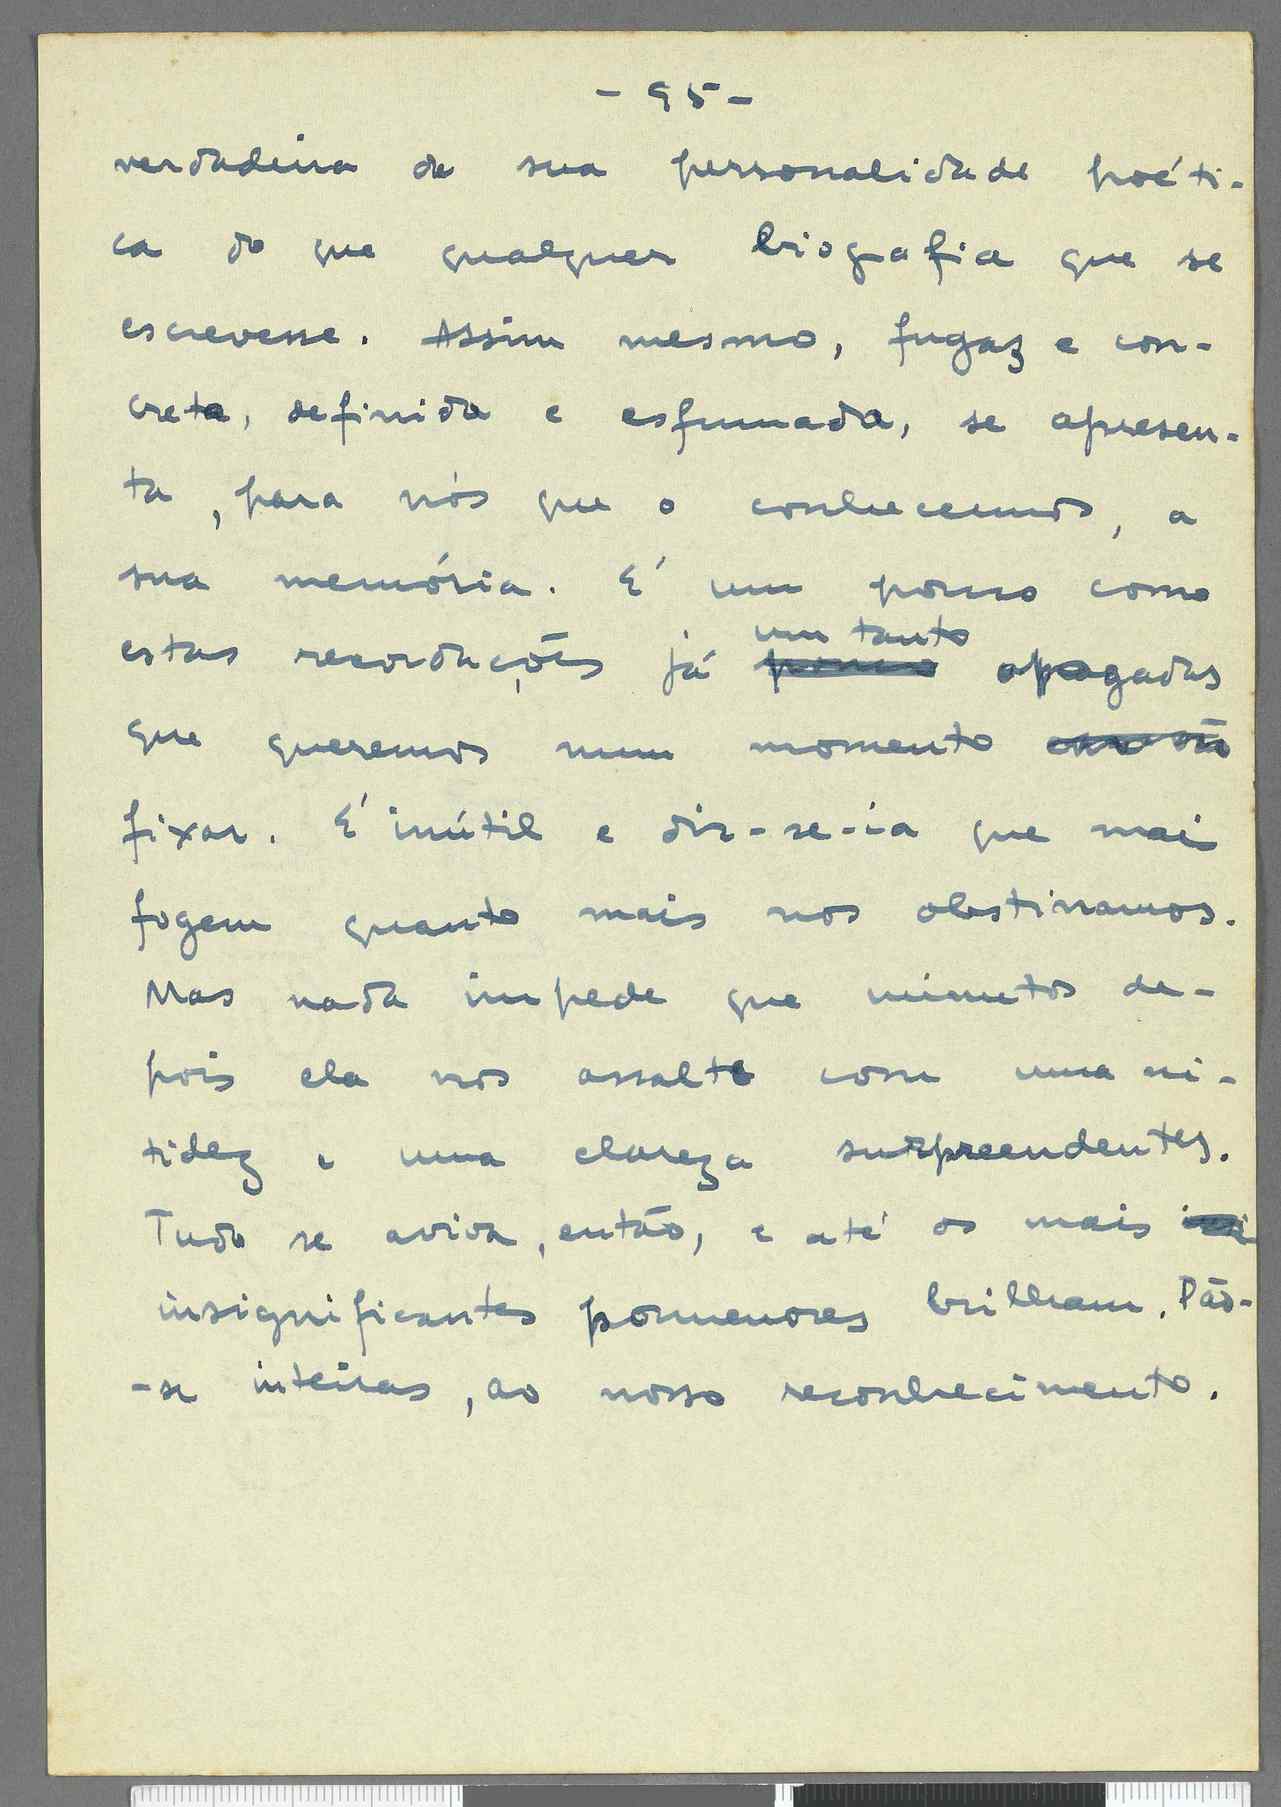 - 95 -
verdadeira da sua personalidade poéti-
ca do que qualquer biografia que se
escrevesse. Assim mesmo, fugaz e con-
creta, definida e esfumada, se apresen-
ta, para nós que o conhecemos, a
sua memória. É um pouco como
um tanto
estas recordações já pouco apagadas
que queremos num momento
fixar. É inútil e dir-se-ia que mais
fogem quanto mais nos obstinamos.
Mas nada impede que minutos de-
pois ela nos assalte com uma ni-
tidez e uma clareza surpreendentes.
Tudo se aviva, então, e até os mais
insignificantes pormenores brilham. Dão-
-se inteiras, ao nosso reconhecimento.